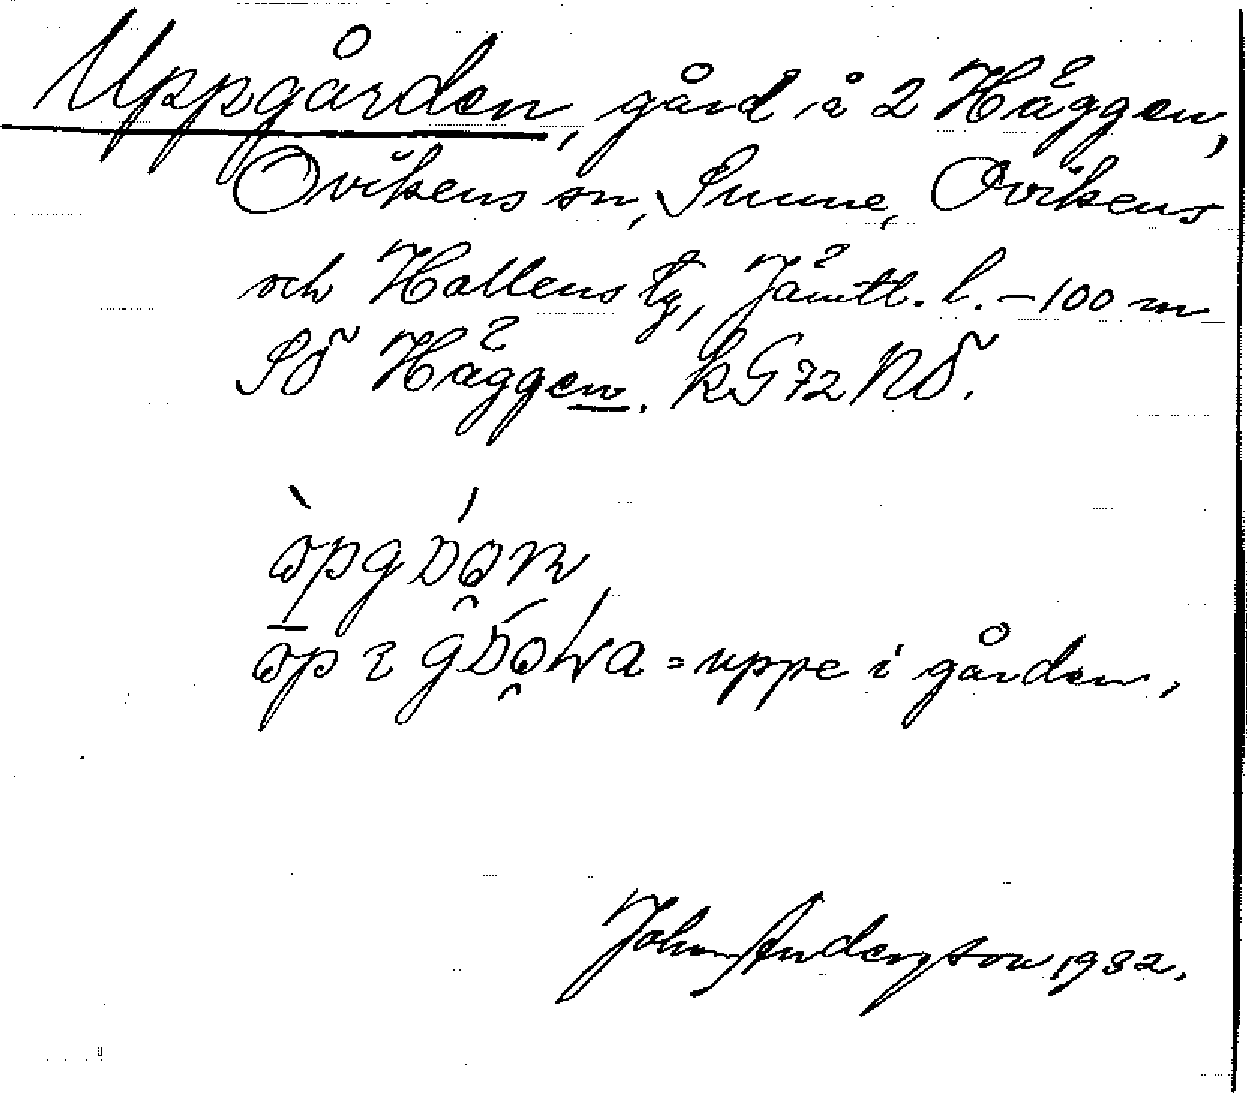 Uppgården, gård å 2 Häggen,
Ovikens sn, Sunne, Ovikens
och Hallens tg, Jämtl. l. – 100 m
SO Häggen. kG 72 NO.
= uppe i gården,
John Anderson 1932.